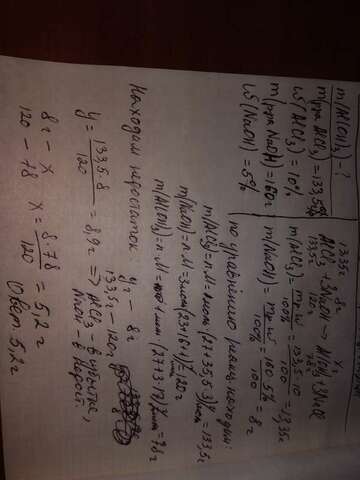 m(Al(OH)3) - ?
m(р-ра AlCl3) = 133,5г
ω(AlCl3) = 10%
m(р-ра NaOH) = 160г
ω(NaOH) = 5%
13,35г 8г x г
AlCl3 + 3NaOH → Al(OH)3 + 3NaCl
133,5г 120г 78г
m(AlCl3) = m·ω / 100% = 133,5·10 / 100 = 13,35г
m(NaOH) = m·ω / 100% = 160·5% / 100 = 8г
по уравнению реакц находим:
m(AlCl3) = n·M = 1моль·(27+35,5·3)г/моль = 133,5г
m(NaOH) = n·M = 3моль(23+16+1)г/моль = 120г
m(Al(OH)3) = n·M = 1моль·(27+3·17)г/моль = 78г
Находим недостаток
y г - 8г
133,5г - 120г
y = 133,5·8 / 120 = 8,9г => AlCl3 - в избытке,
NaOH - в недост.
8г - x
120 - 78
x = 8·78 / 120 = 5,2г
Ответ 5,2г